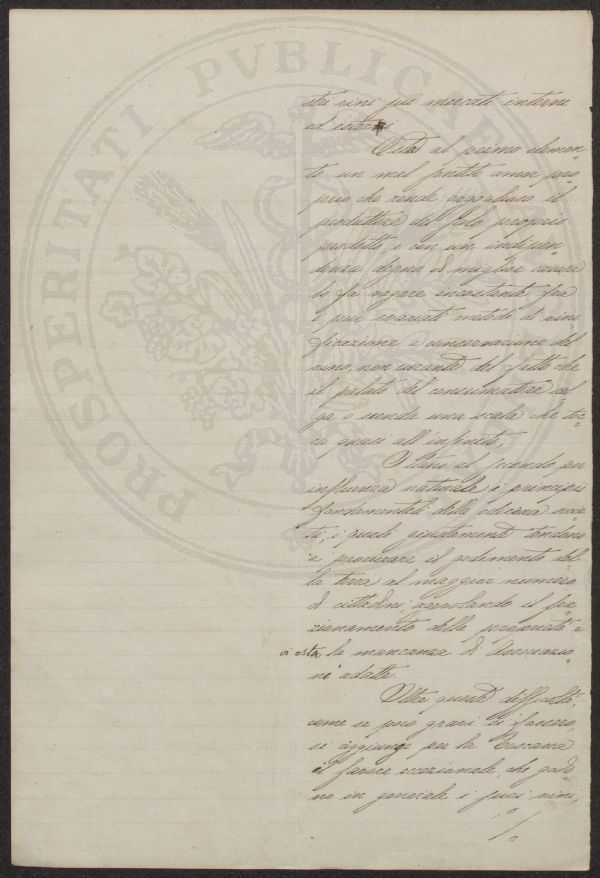 PROSPERITATI PVBLICAE
stri vini sui mercati interni
ed esteri
Osta al primo elemen=
to un mal fondato amor pro=
prio, che rende orgoglioso il
produttore del solo proprio
prodotto, e con un indiffe=
denza degna di miglior causa
lo fa vagare incostante fra
i più svariati metodi di vini
ficazione e conservazione del
vino, non curante del fatto che
il palato del consumatore sal
ga o scenda una scala che toc=
ca quasi all'infinito.
Ostano al secondo, per
influenza naturale, i principii
fondamentali della odierna socie
tà, i quali giustamente tendono
a procurare il godimento del
la terra al maggior numero
di cittadini, agevolando il fra
zionamento della proprietà e
vi osta la mancanza di Associazio
ni adatte.
Oltre queste difficoltà,
come se più gravi si fossero,
si aggiunge per la Toscana
il favore eccezionale, che godo
no in generale i suoi vini,